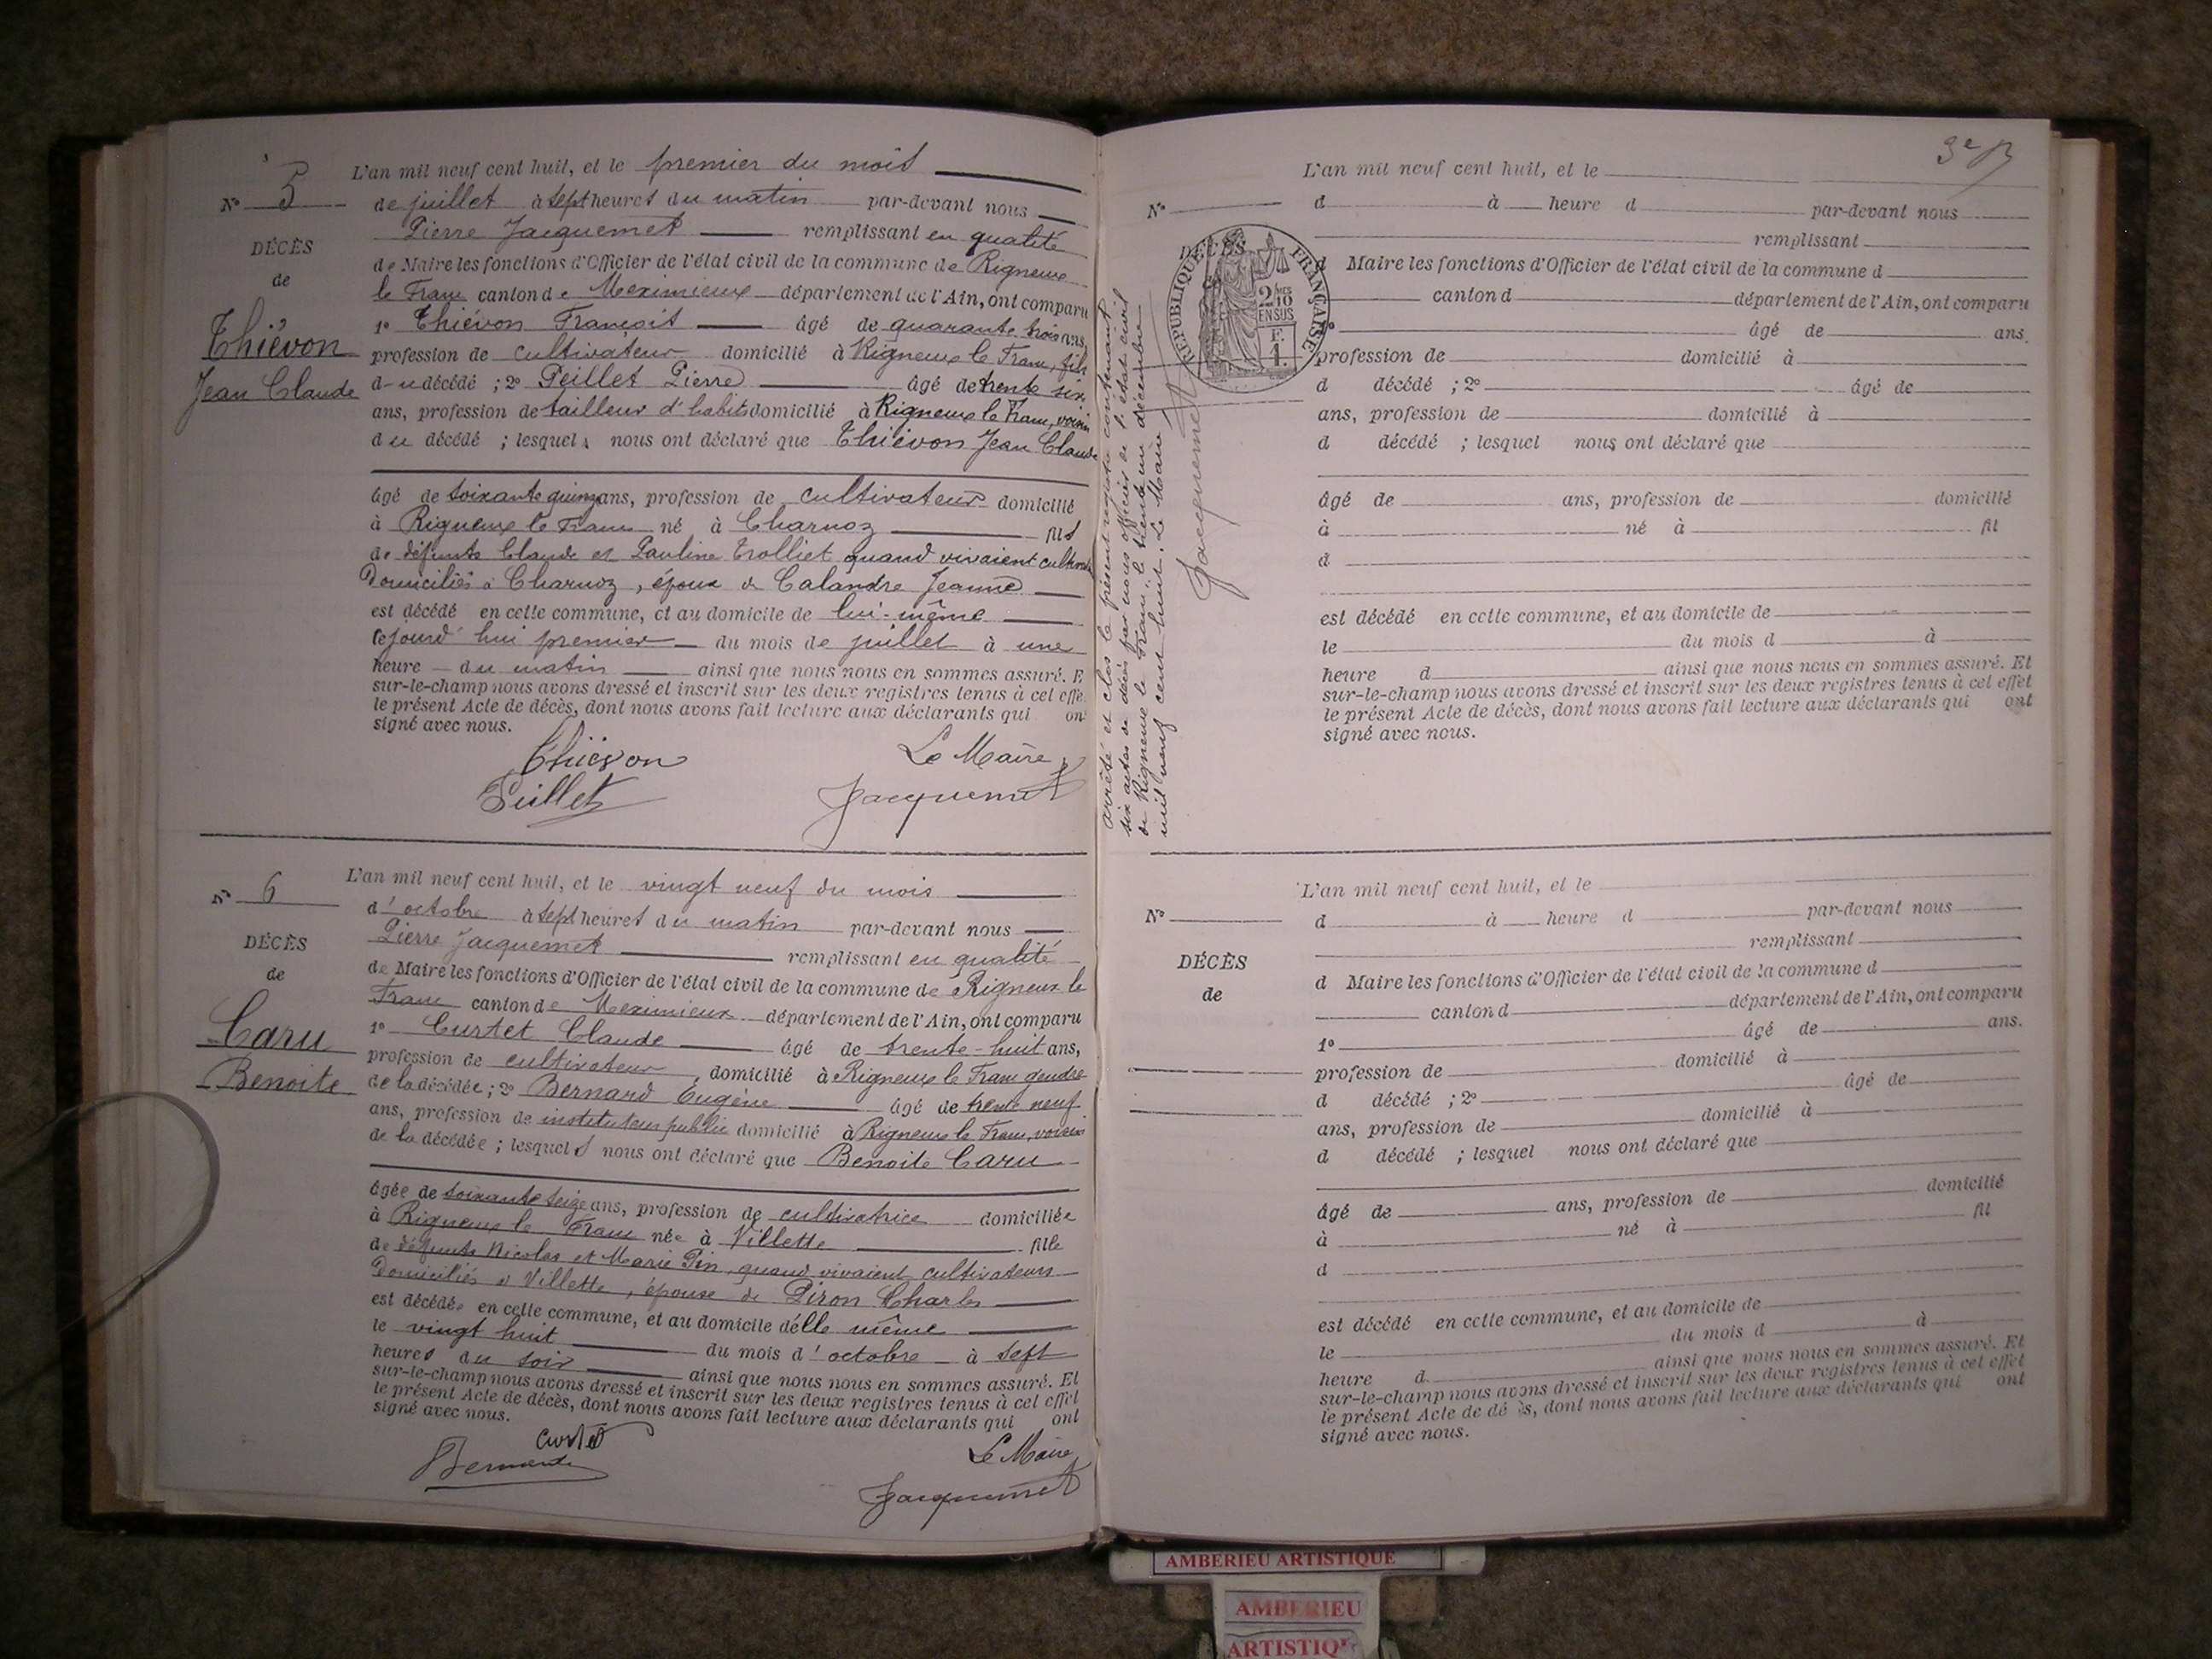 L'an mil neuf cent huit, et le premier du mois
N° 5
de juillet à sept heures du matin par-devant nous
Pierre Jacquemet remplissant en qualité
DÉCÈS
de Maire les fonctions d'Officier de l'état civil de la commune de Rigneux
de
le Franc canton de Meximieux département de l'Ain, ont comparu
1° Thiévon François âgé de quarante trois ans,
Thiévon
profession de cultivateur domicilié à Rigneux le Franc, fils
Jean Claude
du décédé ; 2° Peillet Pierre âgé de trente six
ans, profession de tailleur d'habits domicilié à Rigneux le Franc, voisin
du décédé ; lesquels nous ont déclaré que Thiévon Jean Claude
âgé de soixante quinze ans, profession de cultivateur domicilié
à Rigneux le Franc né à Charnoz fils
de défunts Claude et Pauline Trolliet quand vivaient
Domiciliés à Charnoz, époux de Calandre Jeanne
est décédé en cette commune, et au domicile de lui-même
cejourd'hui premier du mois de juillet à une
heure du matin ainsi que nous nous en sommes assuré. E
sur-le-champ nous avons dressé et inscrit sur les deux registres tenus à cet effe
le présent Acte de décès, dont nous avons fait lecture aux déclarants qui on
signé avec nous.
Thiévon Le Maire
Peillet Jacquemet
L'an mil neuf cent huit, et le vingt neuf du mois
N° 6
d'octobre à sept heures du matin par-devant nous
Pierre Jacquemet remplissant en qualité
DÉCÈS
de Maire les fonctions d'Officier de l'état civil de la commune de Rigneux le
de
Franc canton de Meximieux département de l'Ain, ont comparu
1° Curtet Claude âgé de trente-huit ans,
Caru
profession de cultivateur domicilié à Rigneux le Franc gendre
Benoite
de la décédée ; 2° Bernard Eugène âgé de trente neuf
ans, profession de instituteur public domicilié à Rigneux le Franc, voisin
de la décédée ; lesquels nous ont déclaré que Benoite Caru
âgée de soixante seize ans, profession de cultivatrice domiciliée
à Rigneux le Franc née à Villette fille
de défunts Nicolas et Marie Pin, quand vivaient cultivateurs
Domiciliés à Villette, épouse de Piron Charles
est décédée en cette commune, et au domicile d'elle même
le vingt huit du mois d'octobre à sept
heures du soir ainsi que nous nous en sommes assuré. Et
sur-le-champ nous avons dressé et inscrit sur les deux registres tenus à cet effet
le présent Acte de décès, dont nous avons fait lecture aux déclarants qui ont
signé avec nous.
Curtet
Bernard Le Maire
Jacquemet
arrêté et clos le présent registre contenant
six actes de décès par nous officier de l'état civil
de Rigneux le Franc, le trente un décembre
mil neuf cent huit. Le Maire
Jacquemet
L'an mil neuf cent huit, et le
N°
d à heure d par-devant nous
remplissant
DÉCÈS
RÉPUBLIQUE FRANÇAISE
2/10 EN SUS
F. 1.
d Maire les fonctions d'Officier de l'état civil de la commune d
canton d département de l'Ain, ont comparu
âgé de ans.
profession de domicilié à
d décédé ; 2° âgé de
ans, profession de domicilié à
d décédé ; lesquel nous ont déclaré que
âgé de ans, profession de domicilié
à né à fil
d
est décédé en cette commune, et au domicile de
le du mois d à
heure d ainsi que nous nous en sommes assuré. Et
sur-le-champ nous avons dressé et inscrit sur les deux registres tenus à cet effet
le présent Acte de décès, dont nous avons fait lecture aux déclarants qui ont
signé avec nous.
L'an mil neuf cent huit, et le
N°
d à heure d par-devant nous
remplissant
DÉCÈS
d Maire les fonctions d'Officier de l'état civil de la commune d
de
canton d département de l'Ain, ont comparu
1° âgé de ans.
profession de domicilié à
d décédé ; 2° âgé de
ans, profession de domicilié à
d décédé ; lesquel nous ont déclaré que
âgé de ans, profession de domicilié
à né à fil
d
est décédé en cette commune, et au domicile de
le du mois d à
heure d ainsi que nous nous en sommes assuré. Et
sur-le-champ nous avons dressé et inscrit sur les deux registres tenus à cet effet
le présent Acte de dé ès, dont nous avons fait lecture aux déclarants qui ont
signé avec nous.
AMBERIEU ARTISTIQUE
AMBERIEU
ARTISTIQ